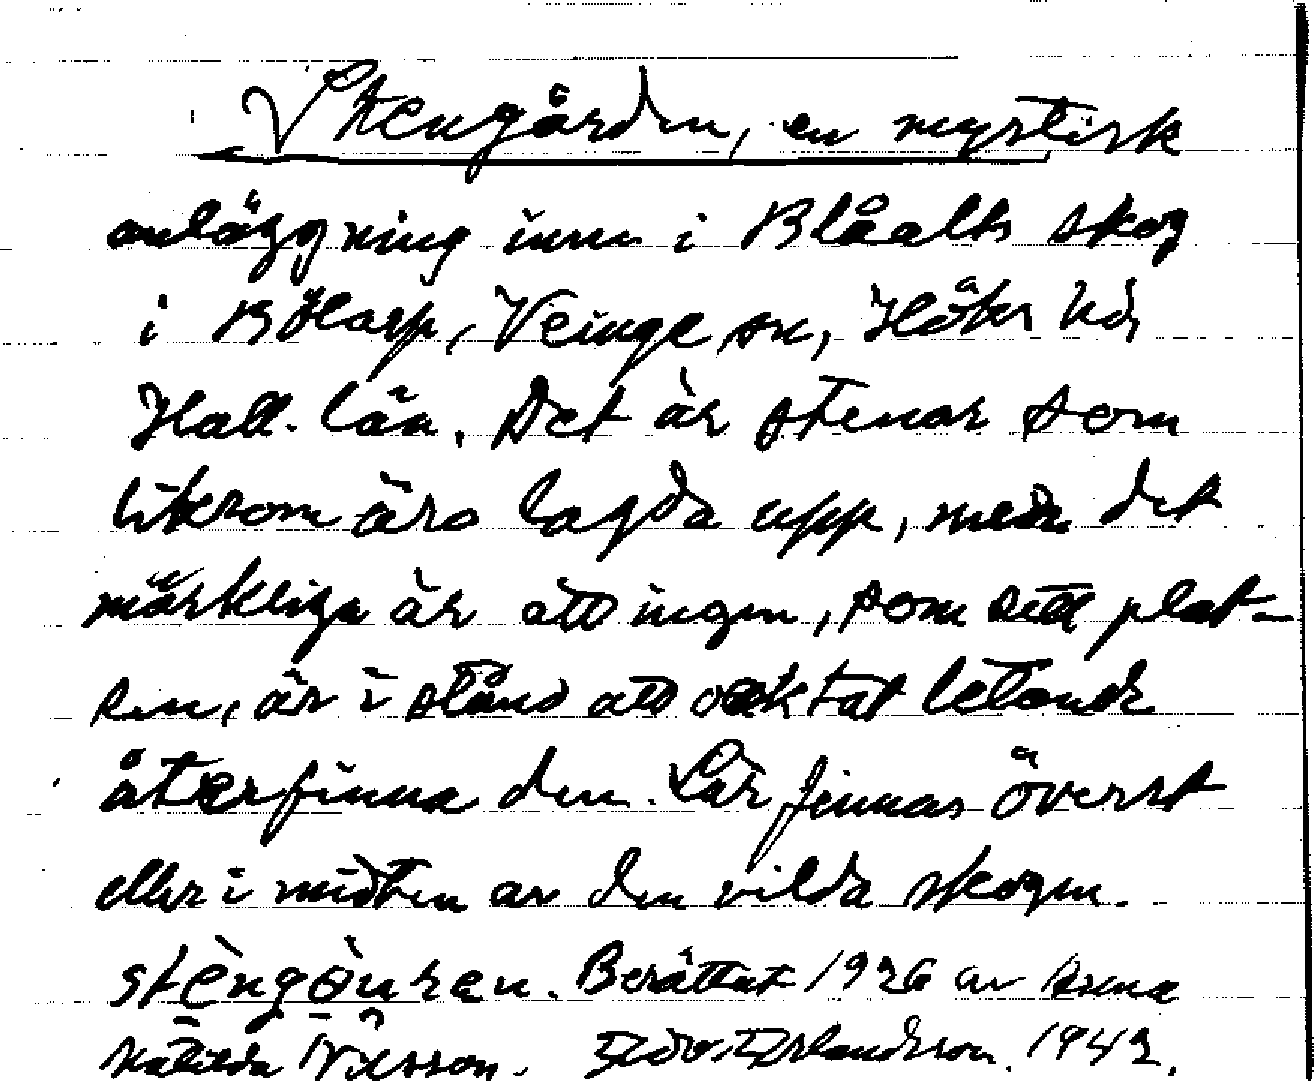 Stengården, en mystisk
anläggning inne i Blåalts skog
i Bölarp, Veinge sn, Höks hd,
Hall. län. Det är stenar som
liksom äro lagda upp, men det
märkliga är att ingen, som sett plat-
sen, är i stånd att letande
återfinna den. Lär finnas överst
eller i midten av den vilda skogen.
stèngòuren. Berättat 1926 av Anna
Matilda Nilsson. Erlandsson. 1942.